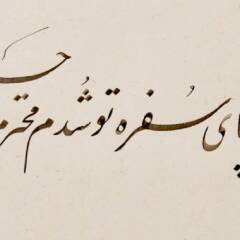 پای سفره تو شدم محترم